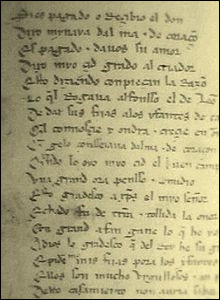 Si es pagado o Reçibio el don
Dixo mynaya dal ma ⁊ de coraço
Es pagado ⁊ davos su amor
Dixo myo çid grado al c'ador
Esto diziendo conpieçan la Razo
Lo ql Rogava alfonsso el de leo
De dar sus fijas alos yfantes de ca
Quel connosçie y ondra ⁊ creçie en
Que gelo conseiava dalma ⁊ de coraço
Qndo lo oyo myo çid el buen camp
Una grand ora penso ⁊ comidio
Esto gradesco a xpus el myo señor
Echado fu de trra ⁊ tollida la onor
Con grand afan gane lo q he yo
A dios lo gradesco q del Rey he su gra
E piden me mis fijas pora los yfantes
Ellos son mucho urgullosos ⁊ an p
Deste casamiento non avria sabor